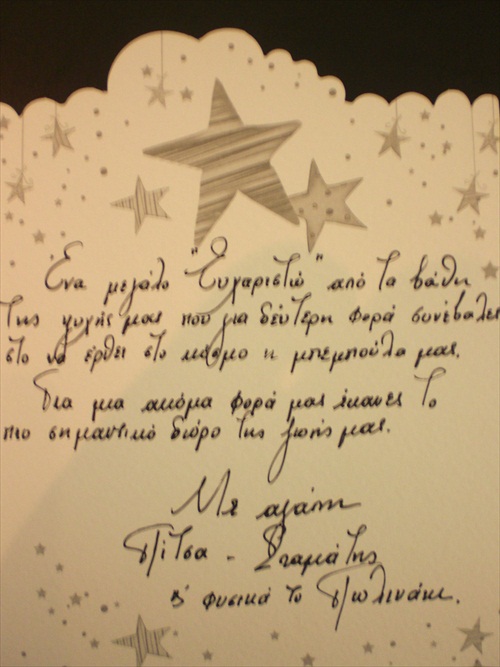 Ένα μεγάλο "Ευχαριστώ" από τα βάθη
της ψυχής μας που για δεύτερη φορά συνέβαλες
στο να έρθει στο κόσμο η μπεμπούλα μας.
Για μια ακόμα φορά μας έκανες το
πιο σημαντικό δώρο της ζωής μας.
Με αγάπη
Πίτσα - Σταμάτης
& φυσικά το Πωλινάκι.